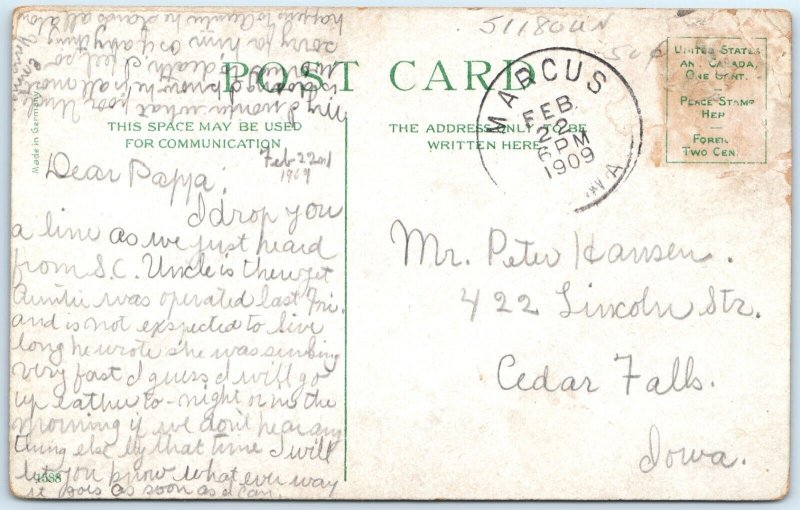 POST CARD
THIS SPACE MAY BE USED
FOR COMMUNICATION
THE ADDRESS ONLY TO BE
WRITTEN HERE
UNITED STATES
AND CANADA,
ONE CENT.
PLACE STAMP
HER
FOREI
TWO CEN
MARCUS
FEB
22
6 PM
1909
WA
Made in Germany
Feb-22nd
1909
Dear Pappa:
I drop you
a line as we just heard
from S.C. Uncle is there yet
Auntie was operated last Fri.
and is not exspected to live
long he wrote she was sinking
very fast I guess I will go
up eather to-night or in the
morning if we don't hear any
thing else by that time I will
let you know what ever way
it gois as soon as I can.
1588
Mr. Peter Hansen.
422 Lincoln Str.
Cedar Falls.
Iowa.
I wonder what poor Unc
to death. I feel so
sorry for him or if anything
happens to Auntie he stands all alone
511804N